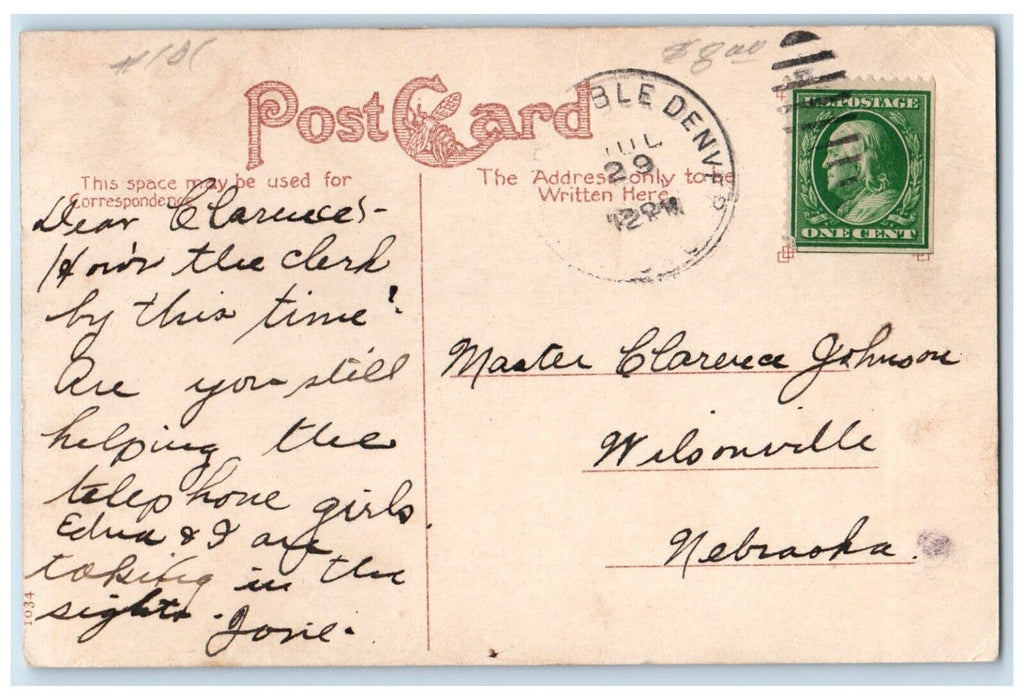 #101
$8.00
Post Card
BLE DENVE
JUL
29
12 PM
U.S. POSTAGE
ONE CENT
This space may be used for
Correspondence
The Address only to be
Written Here.
Dear Clarence:-
How's the clerk
by this time?
Are you still
helping the
telephone girls.
Edna & I are
taking in the
sights. Josie.
Master Clarence Johnson
Wilsonville
Nebraska.
1034